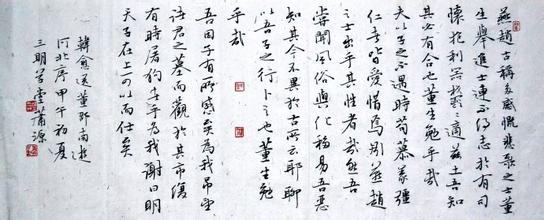 燕趙古稱多感慨悲歌之士董
生舉進士連不得志於有司
懷抱利器鬱鬱適茲土吾知
其必有合也董生勉乎哉
夫以子之不遇時苟慕義彊
仁者皆愛惜焉矧燕趙
之士出乎其性者哉然吾
嘗聞風俗與化移易吾惡
知其今不異於古所云耶聊
以吾子之行卜之也董生勉
乎哉
吾因子有所感矣為我弔望
諸君之墓而觀於其市復
有時屠狗者乎為我謝曰明
天子在上可以而仕矣
韓愈送董邵南遊
河北序甲午初夏
三明蕭源